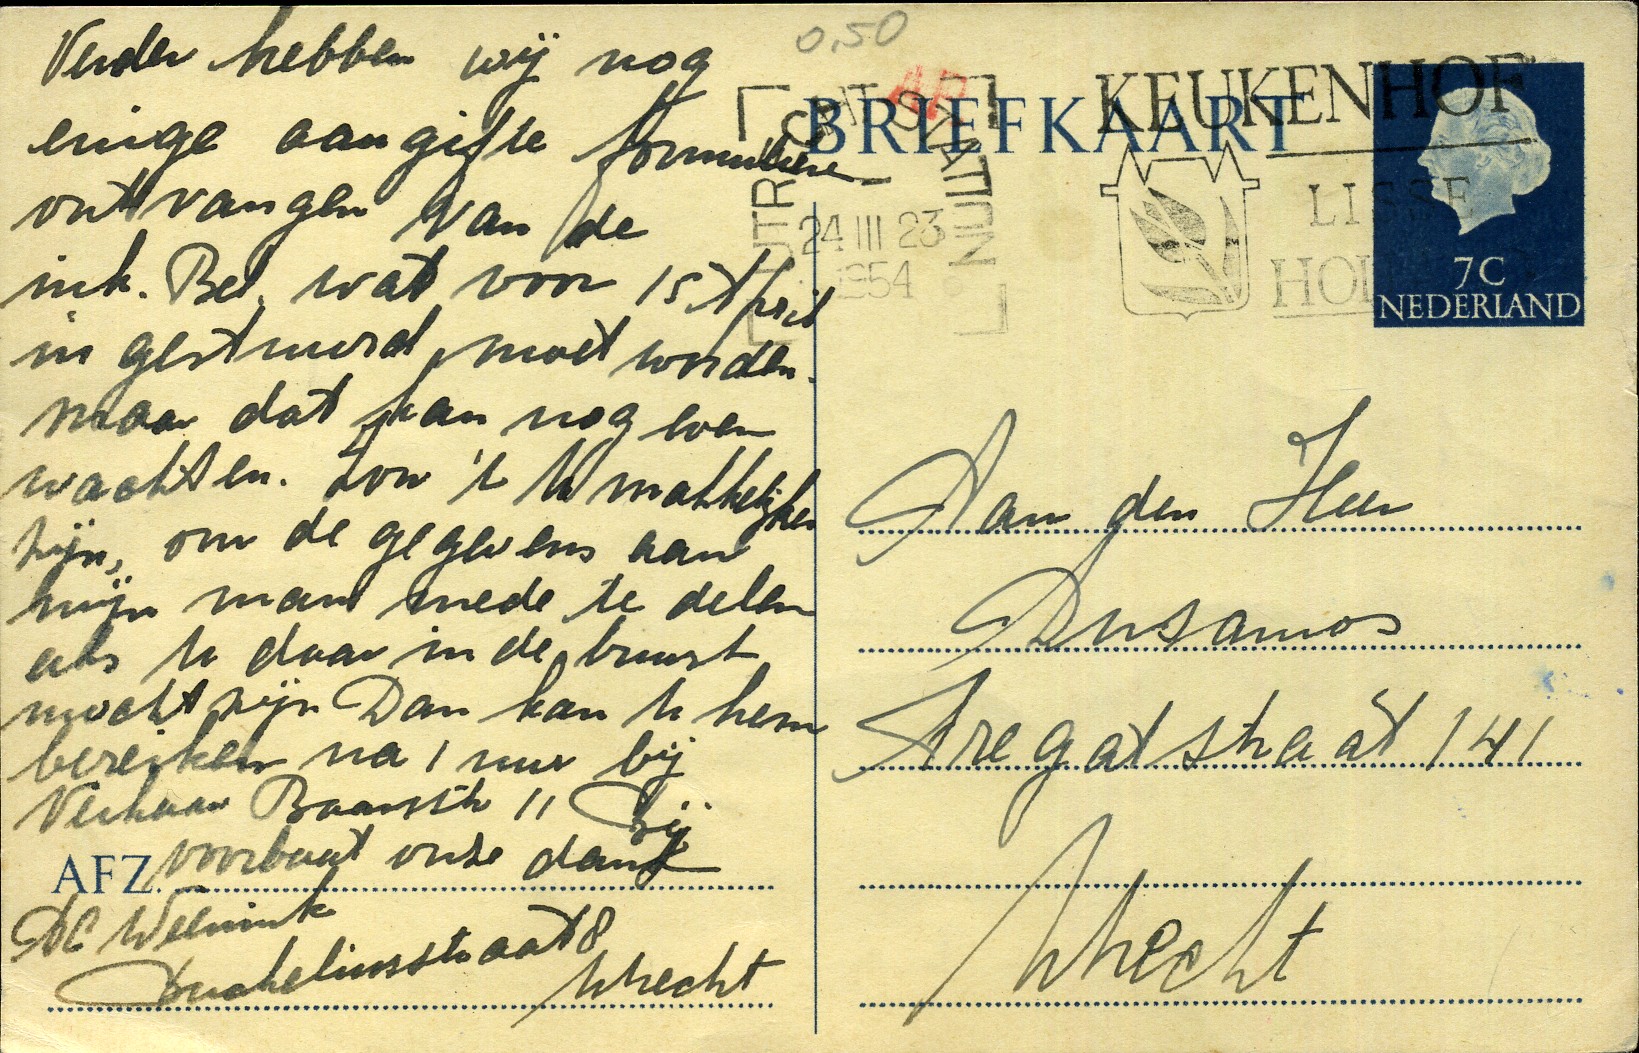 Verder hebben wij nog
einige aangifte formuliere
ontvangen van de
ink. Bel. wat voor 15 April
in gestuurd moet worden.
maar dat kan nog even
wachten. Zou 't U makkelijker
zijn, om de gegevens aan
mijn man mede te delen
als U daar in de buurt
mocht zijn Dan kan U hem
bereiken na 1 uur bij
Verhaar Baanstr 11 Bij
voorbaat onze dank
AFZ.
DC Weenink
straat 8
Utrecht
0,50
BRIEFKAART
24 III 23
1954
KEUKENHOF
LISSE
HOL
7C
NEDERLAND
Aan den Heer
Dusamos
Fregatstraat 141
Utrecht